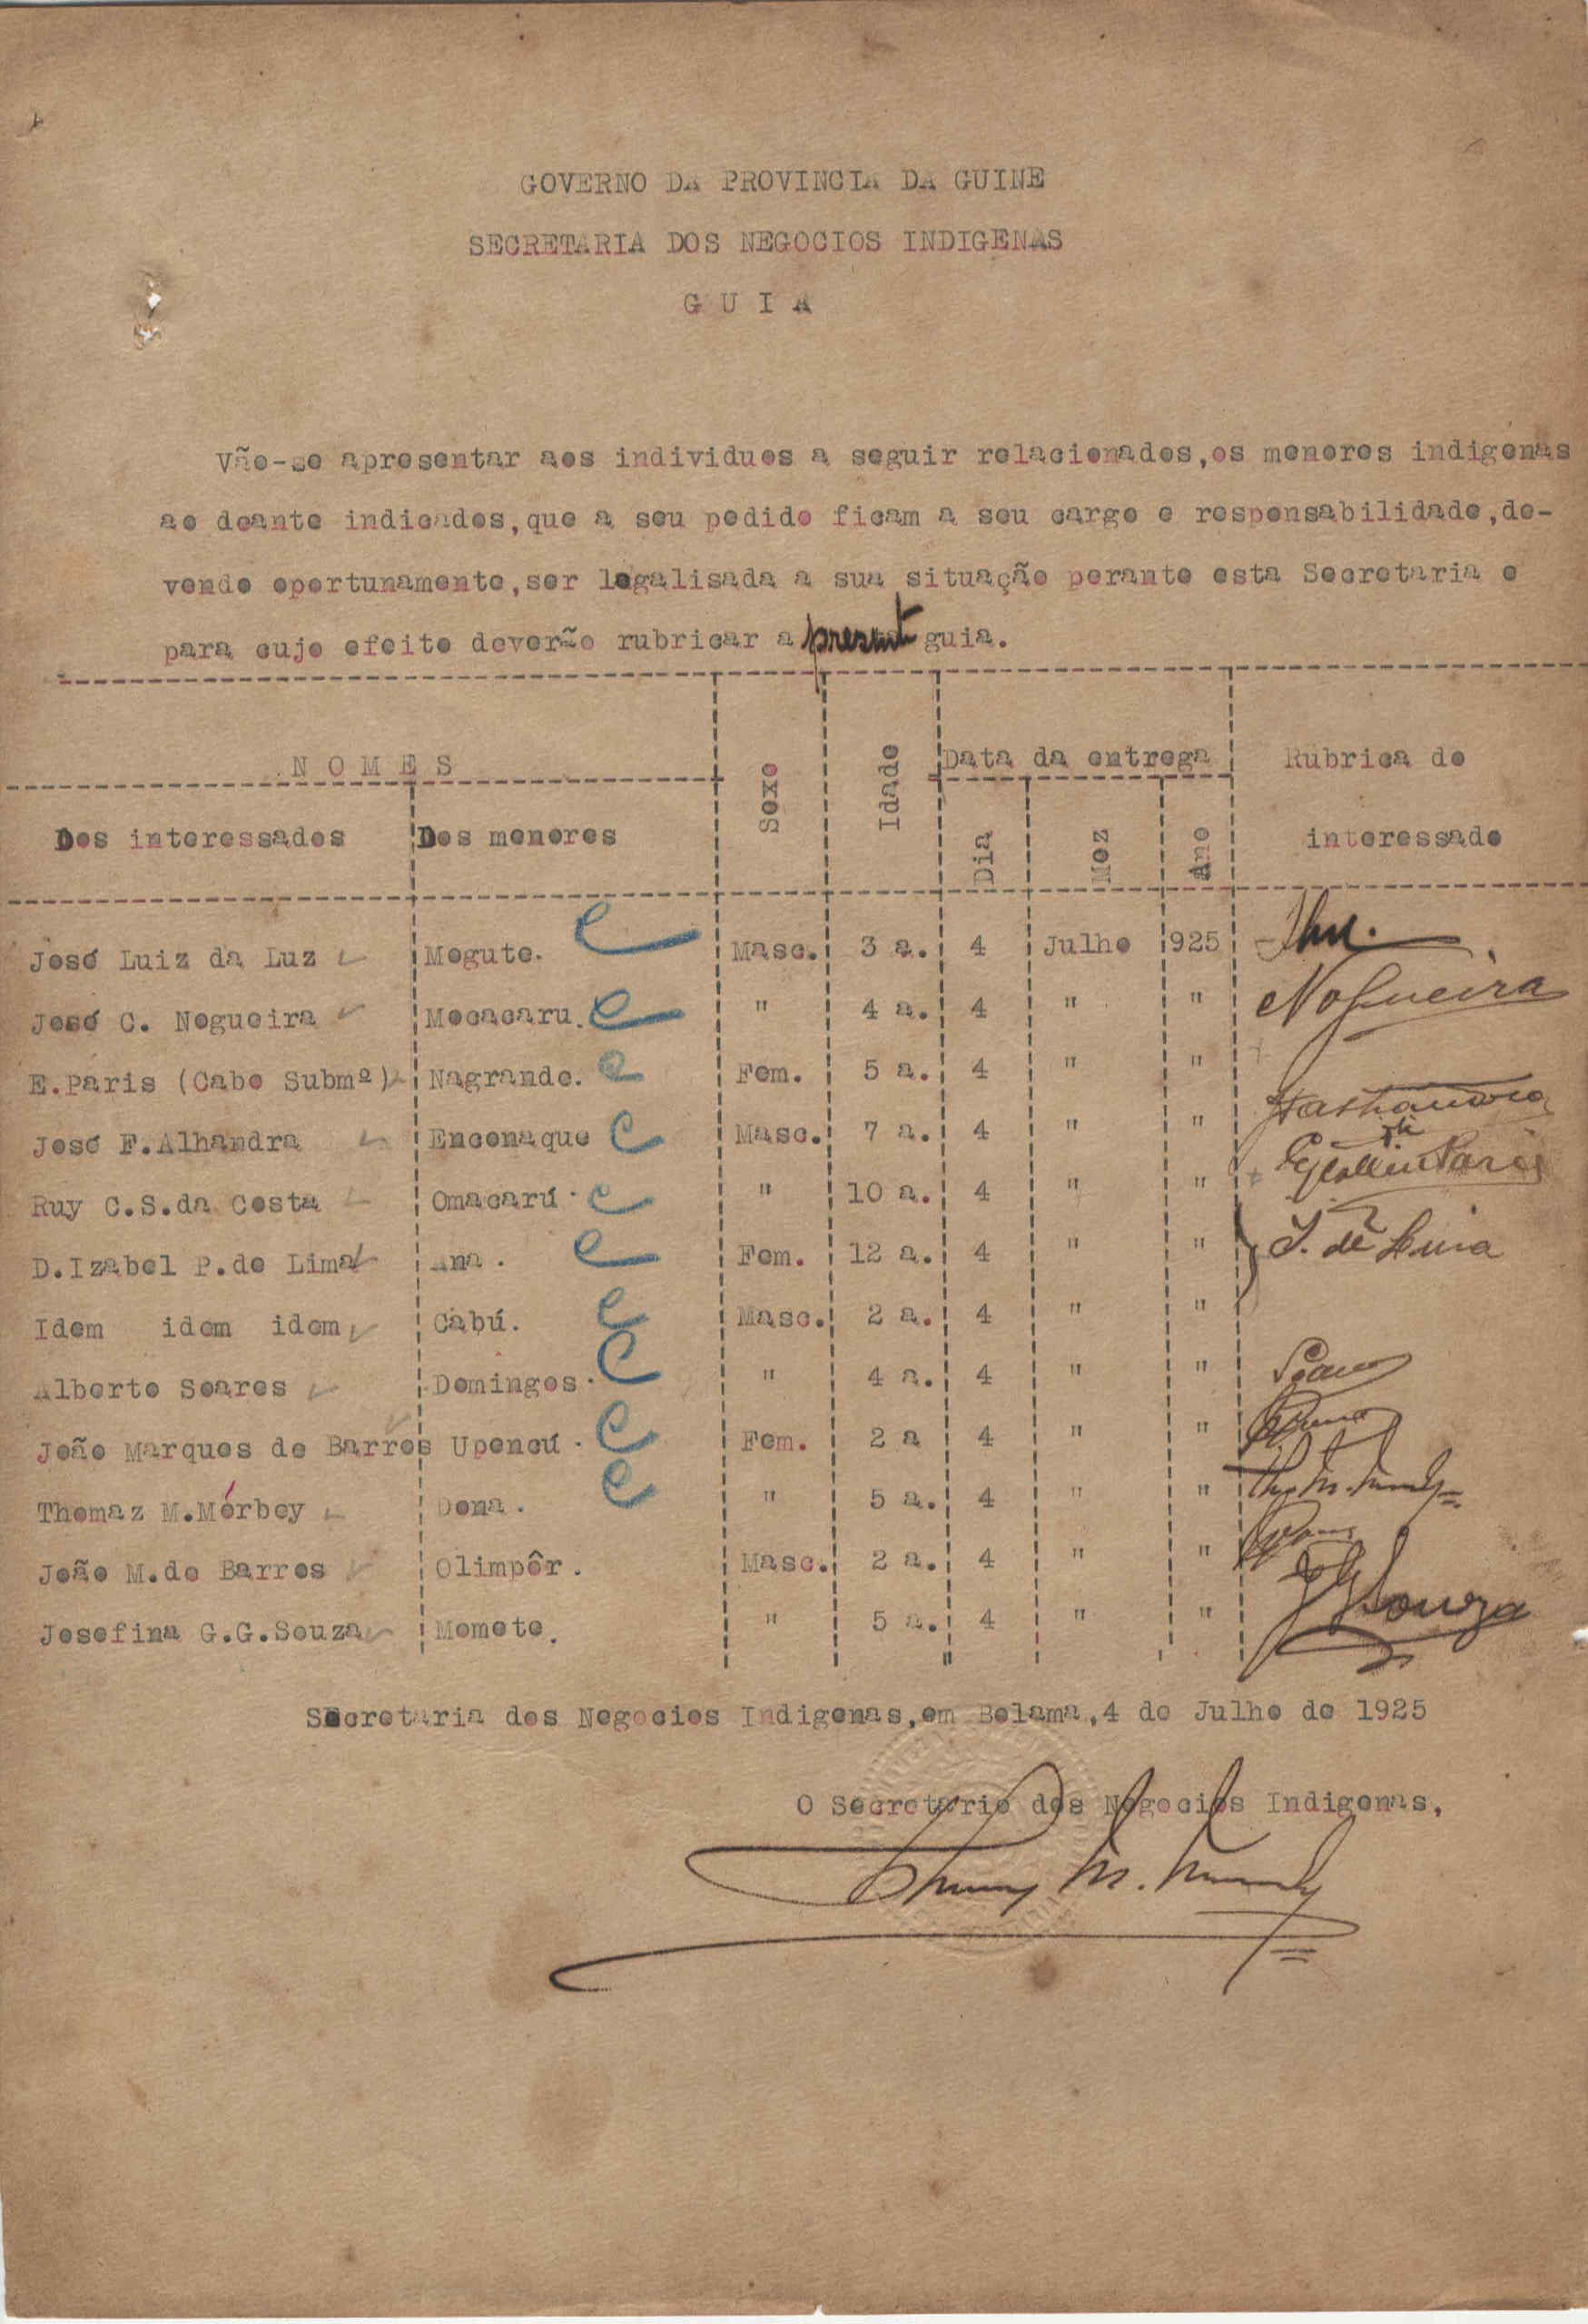 GOVERNO DA PROVINCIA DA GUINE
SECRETARIA DOS NEGOCIOS INDIGENAS
G U I A
Vão-se apresentar aos individuos a seguir relacionados,os menores indigenas
ao deante indicados,que a seu pedido ficam a seu cargo e responsabilidade,de-
vendo oportunamente,ser legalisada a sua situação perante esta Secretaria e
para cujo efeito deverão rubricar a present guia.
N O M E S Sexo Idade Data da entrega Rubrica do
Dos interessados Dos menores Dia Mez Ano interessado
José Luiz da Luz Mogute. Masc. 3 a. 4 Julho 925
José C. Nogueira Mocacaru. " 4 a. 4 " " Nogueira
E.Paris (Cabo Submº) Nagrande. Fem. 5 a. 4 " "
José F.Alhandra Enconaque Masc. 7 a. 4 " "
Ruy C.S.da Costa Omacarú. " 10 a. 4 " "
D.Izabel P.de Lima Ana. Fem. 12 a. 4 " " I. de Lima
Idem idem idem Cabú. Masc. 2 a. 4 " "
Alberto Soares Domingos. " 4 a. 4 " " Soares
João Marques de Barros Upencú. Fem. 2 a 4 " "
Thomaz M.Mórbey Dona. " 5 a. 4 " "
João M.de Barros Olimpôr. Masc. 2 a. 4 " "
Josefina G.G.Souza Momote. " 5 a. 4 " " Souza
Secretaria dos Negocios Indigenas,em Bolama,4 de Julho de 1925
O Secretario dos Negocios Indigenas,